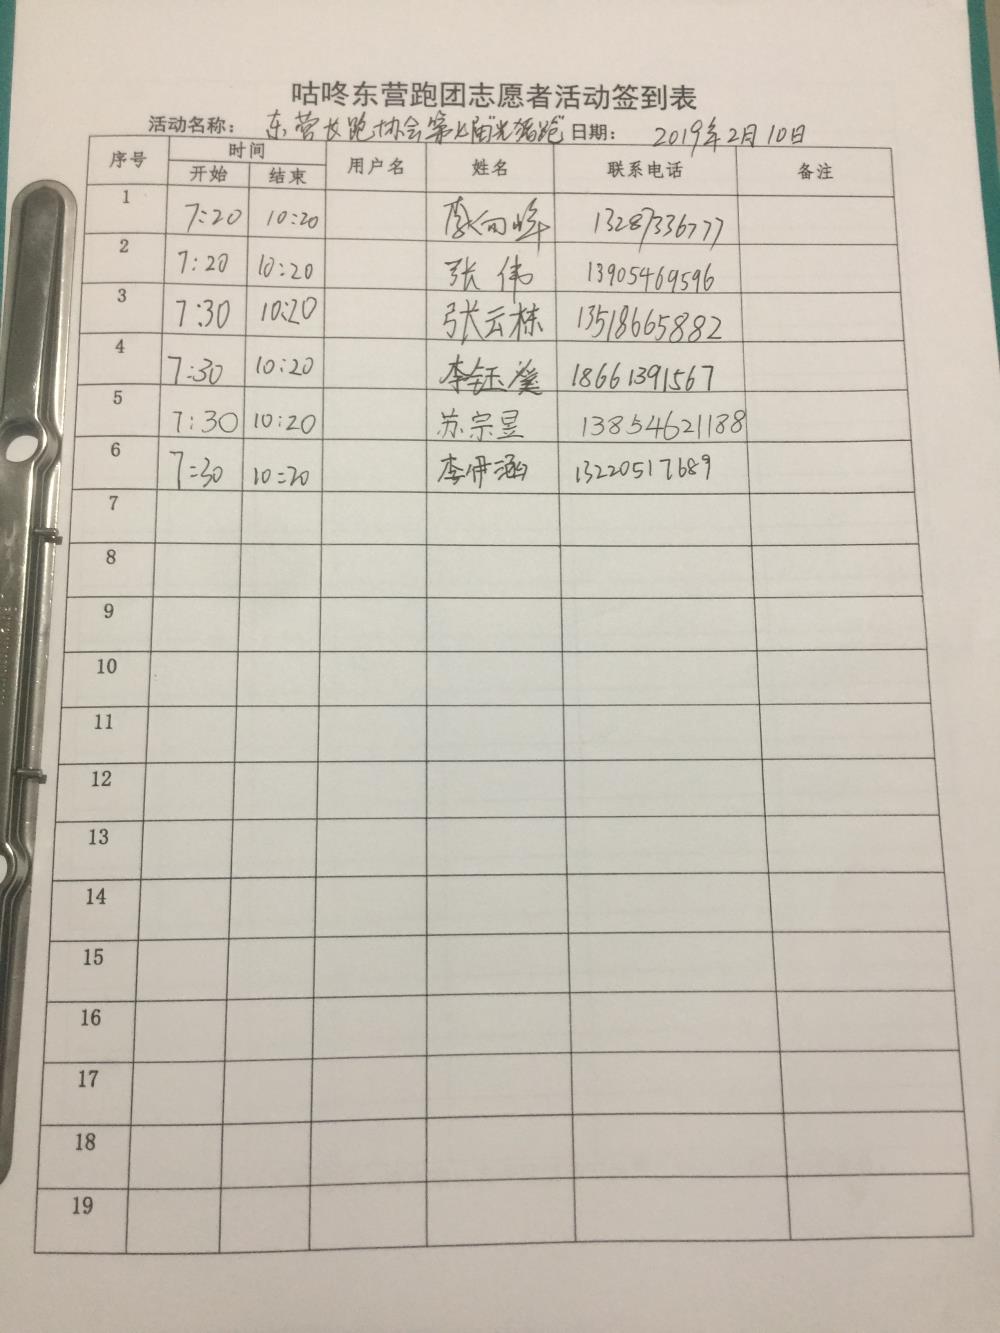 咕咚东营跑团志愿者活动签到表
活动名称： 东营长跑协会第七届"光猪跑" 日期： 2019年2月10日
序号 时间 用户名 姓名 联系电话 备注
开始 结束
1 7:20 10:20 李向峰 13287336777
2 7:20 10:20 张伟 13905469596
3 7:30 10:20 张云栋 13518665882
4 7:30 10:20 李钰 18661391567
5 7:30 10:20 苏宗昱 13854621188
6 7:30 10:20 李伊涵 13220517689
7
8
9
10
11
12
13
14
15
16
17
18
19